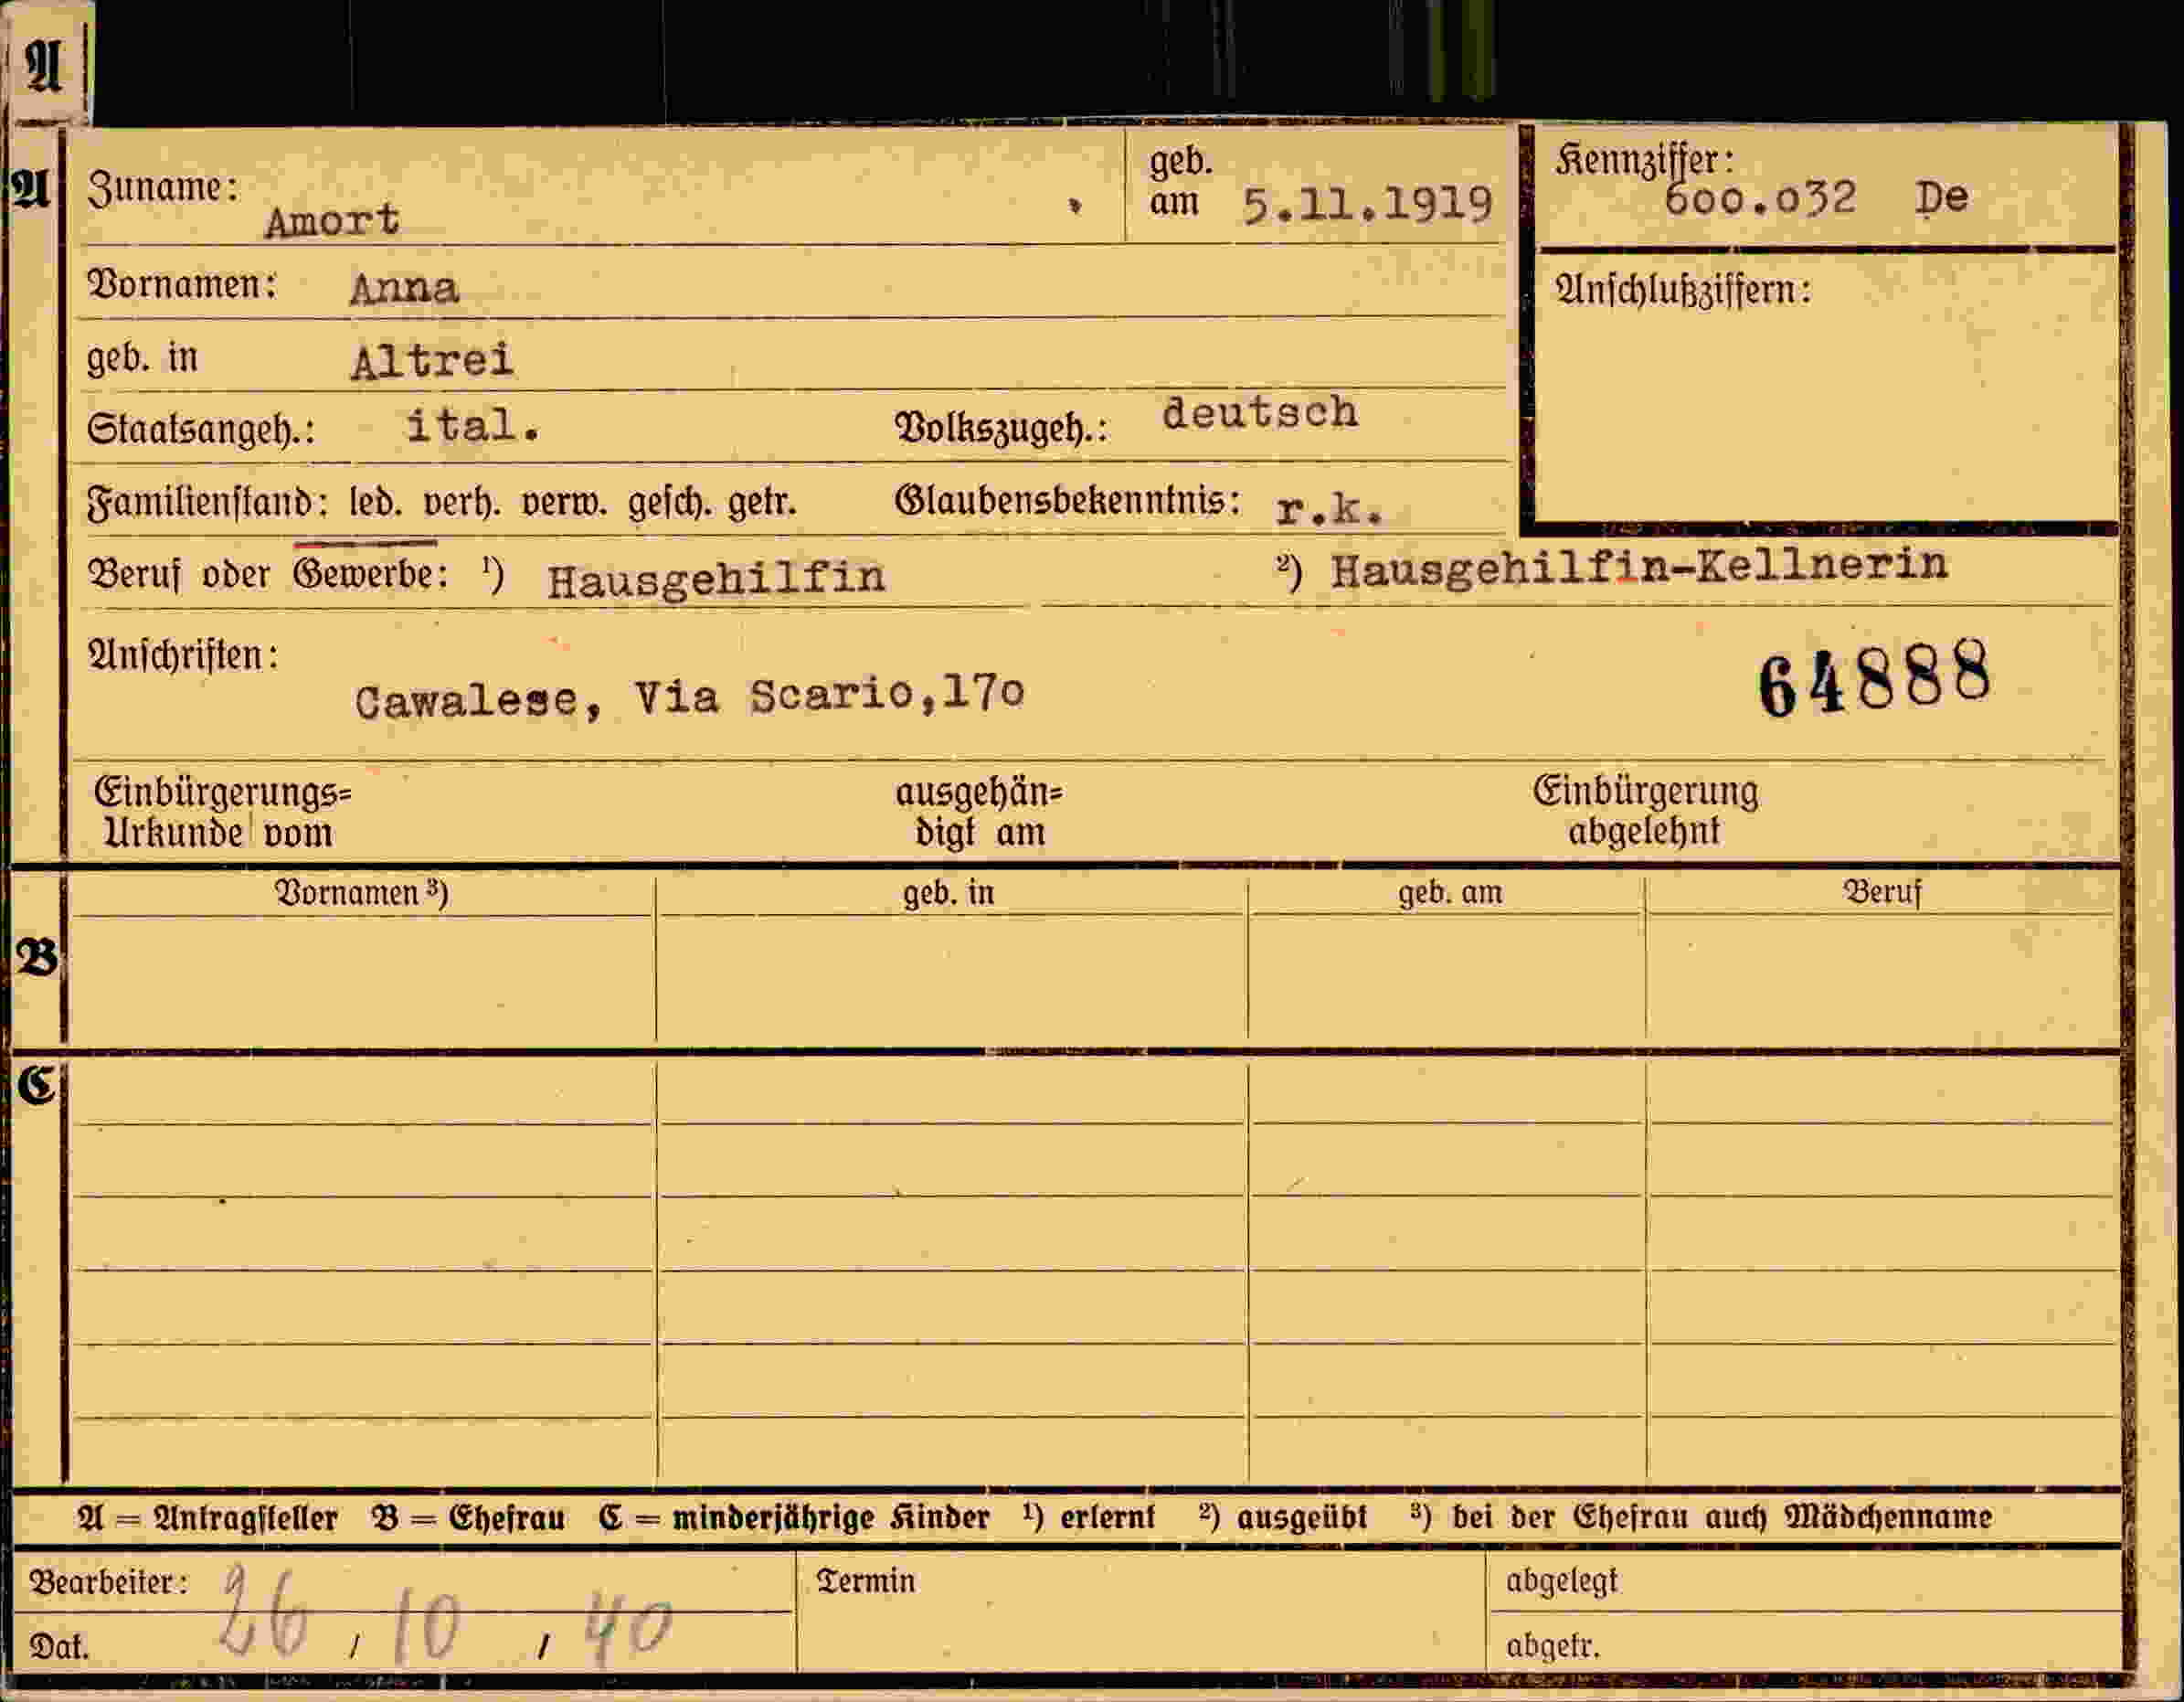 A
A
Zuname: Amort
geb. am 5.11.1919
Kennziffer: 600.032 De
Vornamen: Anna
Anschlußziffern:
geb. in Altrei
Staatsangeh.: ital. Volkszugeh.: deutsch
Familienstand: led. verh. verw. gesch. getr. Glaubensbekenntnis: r.k.
Beruf oder Gewerbe: ¹) Hausgehilfin ²) Hausgehilfin-Kellnerin
Anschriften:
Cawalese, Via Scario,17o
64888
Einbürgerungs= ausgehän= Einbürgerung
Urkunde vom digt am abgelehnt
Vornamen ³) geb. in geb. am Beruf
B
C
A = Antragsteller B = Ehefrau C = minderjährige Kinder ¹) erlernt ²) ausgeübt ³) bei der Ehefrau auch Mädchenname
Bearbeiter: Termin abgelegt
Dat. 26 / 10 / 40 abgetr.